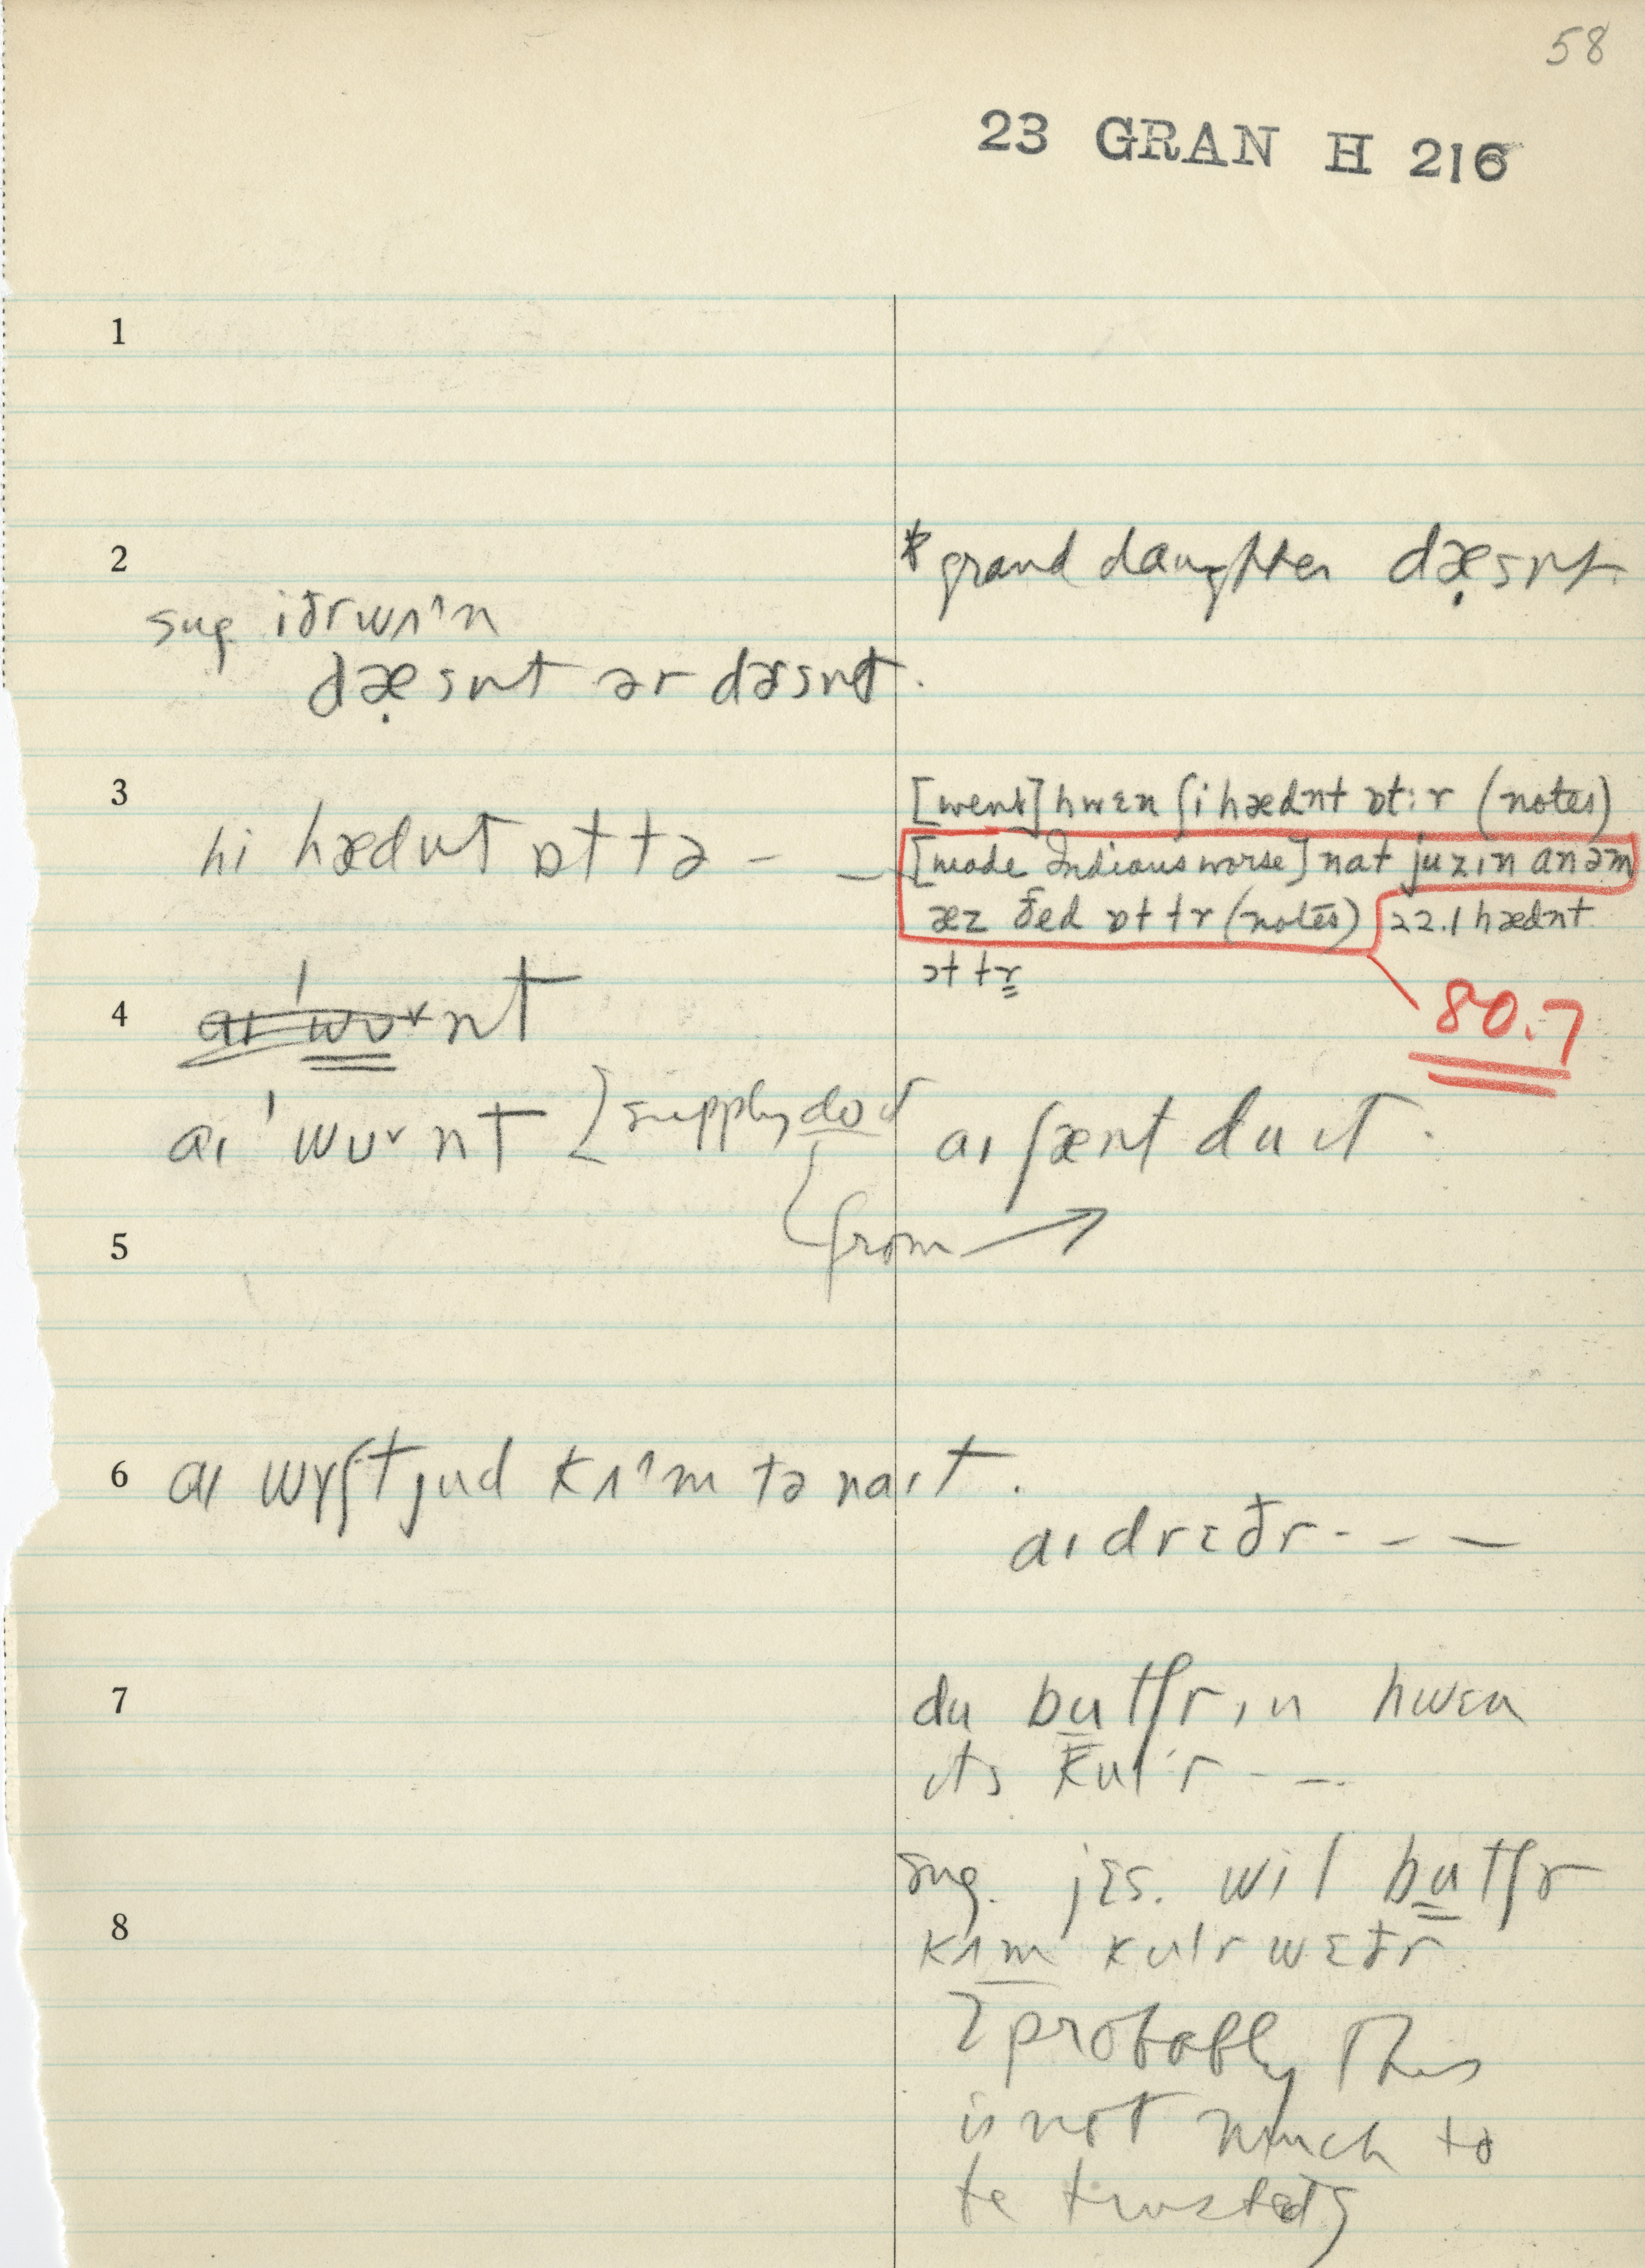 58
23 GRAN H 216
1
2
* grand daughter dæ̣snt
sug. iðr wʌ^n
dæ̣snt ər dɚsnt.
3
[went] hwɛn ʃi hædnt ɒt:ɚ (notes)
hi hædnt ɒt tə –
[made Indians worse] nat juzɪn anəm
æz ðed ɒt tɚ (notes) 22.1 hædnt
ɔt tɚ
80.7
4
aɪ 'wʊˇnt
aɪ 'wʊˇnt [supply do it
aɪ ʃænt du ɪt.
from →
5
6
aɪ wɪʃt jud kʌ^m tənaɪt.
aɪd rɛðr - - -
7
du butʃrɪn hwɛn
ɪts kulr - -
sug. jɛs. wil butʃr
8
kʌm kulr wɛðr
[probably this
is not much to
be trusted]